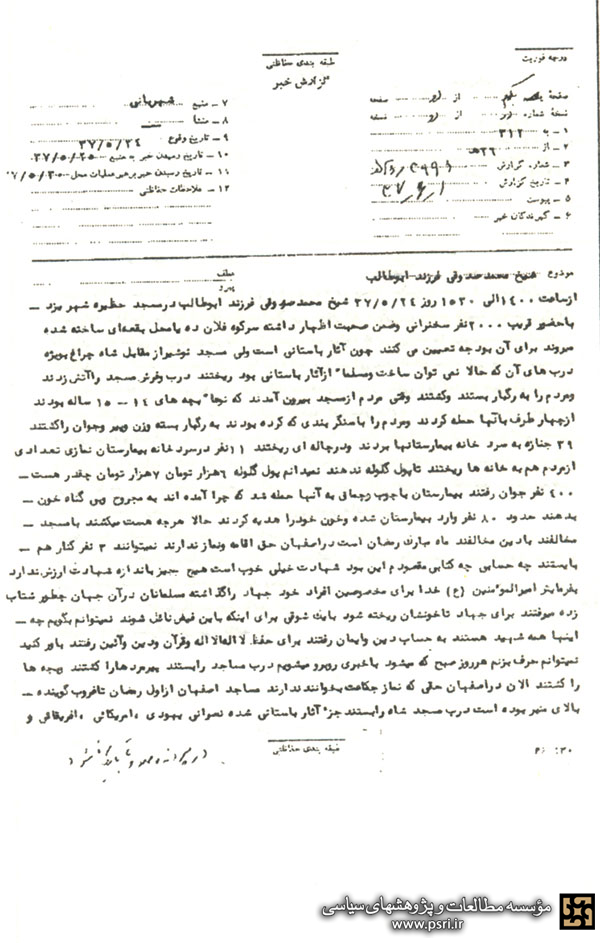 درجه فوریت
طبقه بندی حفاظتی
گزارش خبر
صفحه یکم از دو صفحه
نسخه شماره از نسخه
۱ – به ۳۱۲
۲ – از ۲۶ هـ
۳ – شماره گزارش
۴ – تاریخ گزارش ۳۷/۶/۱
۵ – پیوست
۶ – گیرندگان خبر
۷ – منبع شهربانی
۸ – منشأ
۹ – تاریخ وقوع ۳۷/۵/۲۴
۱۰ – تاریخ رسیدن خبر به منبع ۳۷/۵/۲۵
۱۱ – تاریخ رسیدن خبر برهبر عملیات محل ۳۷/۵/۳۰
۱۲ – ملاحظات حفاظتی
موضوع شیخ محمد صدوقی فرزند ابوطالب
عطف
پیرو
از ساعت ۱۴۰۰ الی ۱۵۳۰ روز ۳۷/۵/۲۴ شیخ محمد صدوقی فرزند ابوطالب در مسجد حظیره شهر یزد –
با حضور قریب ۲۰۰۰ نفر سخنرانی وضمن صحبت اظهار داشته سرکوه فلان ده یا محل بقعه‌ای ساخته شده
میروند برای آن بودجه تعیین می کنند چون آثار باستانی است ولی مسجد نوشیراز مقابل شاه چراغ بویژه
درب های آن که حالا نمی توان ساخت ومسلما" از آثار باستانی بود ریختند درب وفرش مسجد را آتش زدند
ومردم را به رگبار بستند وکشتند وقتی مردم از مسجد بیرون آمدند که نوها بچه های ۱۴ – ۱۵ ساله بودند
از چهار طرف با آنها حمله کردند ومردم را با سنگربندی که کرده بودند به رگبار بسته وزن وپیر وجوان را کشتند
۳۹ جنازه به سرد خانه بیمارستانها بردند ودر چاله ای ریختند ۱۱ نفر در سردخانه بیمارستان نمازی تعدادی
از مردم هم به خانه ها ریختند تا پول گلوله ندهند نمیدانم پول گلوله ۶ هزار تومان ۷ هزار تومان چقدر هست –
۴۰۰ نفر جوان رفتند بیمارستان با چوب وچماق به آنها حمله شد که چرا آمده اند به مجروح وبی گناه خون –
بدهند حدود ۸۰ نفر وارد بیمارستان شده وخون خود را هدیه کردند حالا هرچه هست میکشند با مسجد –
مخالفند با دین مخالفند ماه مبارک رمضان است در اصفهان حق اقامه ونماز ندارند نمیتوانند ۳ نفر کنار هم –
بایستند چه حسابی چه کتابی مقصودم این بود شهادت خیلی خوب است هیچ چیز باندازه شهادت ارزش ندارد
بفرمایش امیرالمومنین (ع) خدا برای مخصوصین افراد خود جهاد را گذاشته مسلمانان در آن جهان چطور شتاب
زده میرفتند برای جهاد تا خونشان ریخته شود بایک شوقی برای اینکه باین فیض نائل شوند نمیتوانم بگویم چه –
اینها همه شهید هستند به حساب دین وایمان رفتند برای حفظ لا اله الا اله وقرآن ودین وآئین رفتند باور کنید
نمیتوانم حرف بزنم هر روز صبح که میشود با خبری روبرو میشویم درب مساجد را بستند پیرمردها را کشتند وبچه ها
را کشتند الان در اصفهان حقی که نماز جماعت بخوانند ندارند مساجد اصفهان از اول رمضان تا غروب گوینده –
بالای منبر بوده است درب مسجد شاه را بستند جزء آثار باستانی شده نصرانی یهودی ، امریکائی ، افریقائی و
طبقه بندی حفاظتی
۳۰ : ۴۶
مؤسسه مطالعات و پژوهشهای سیاسی
www.psri.ir